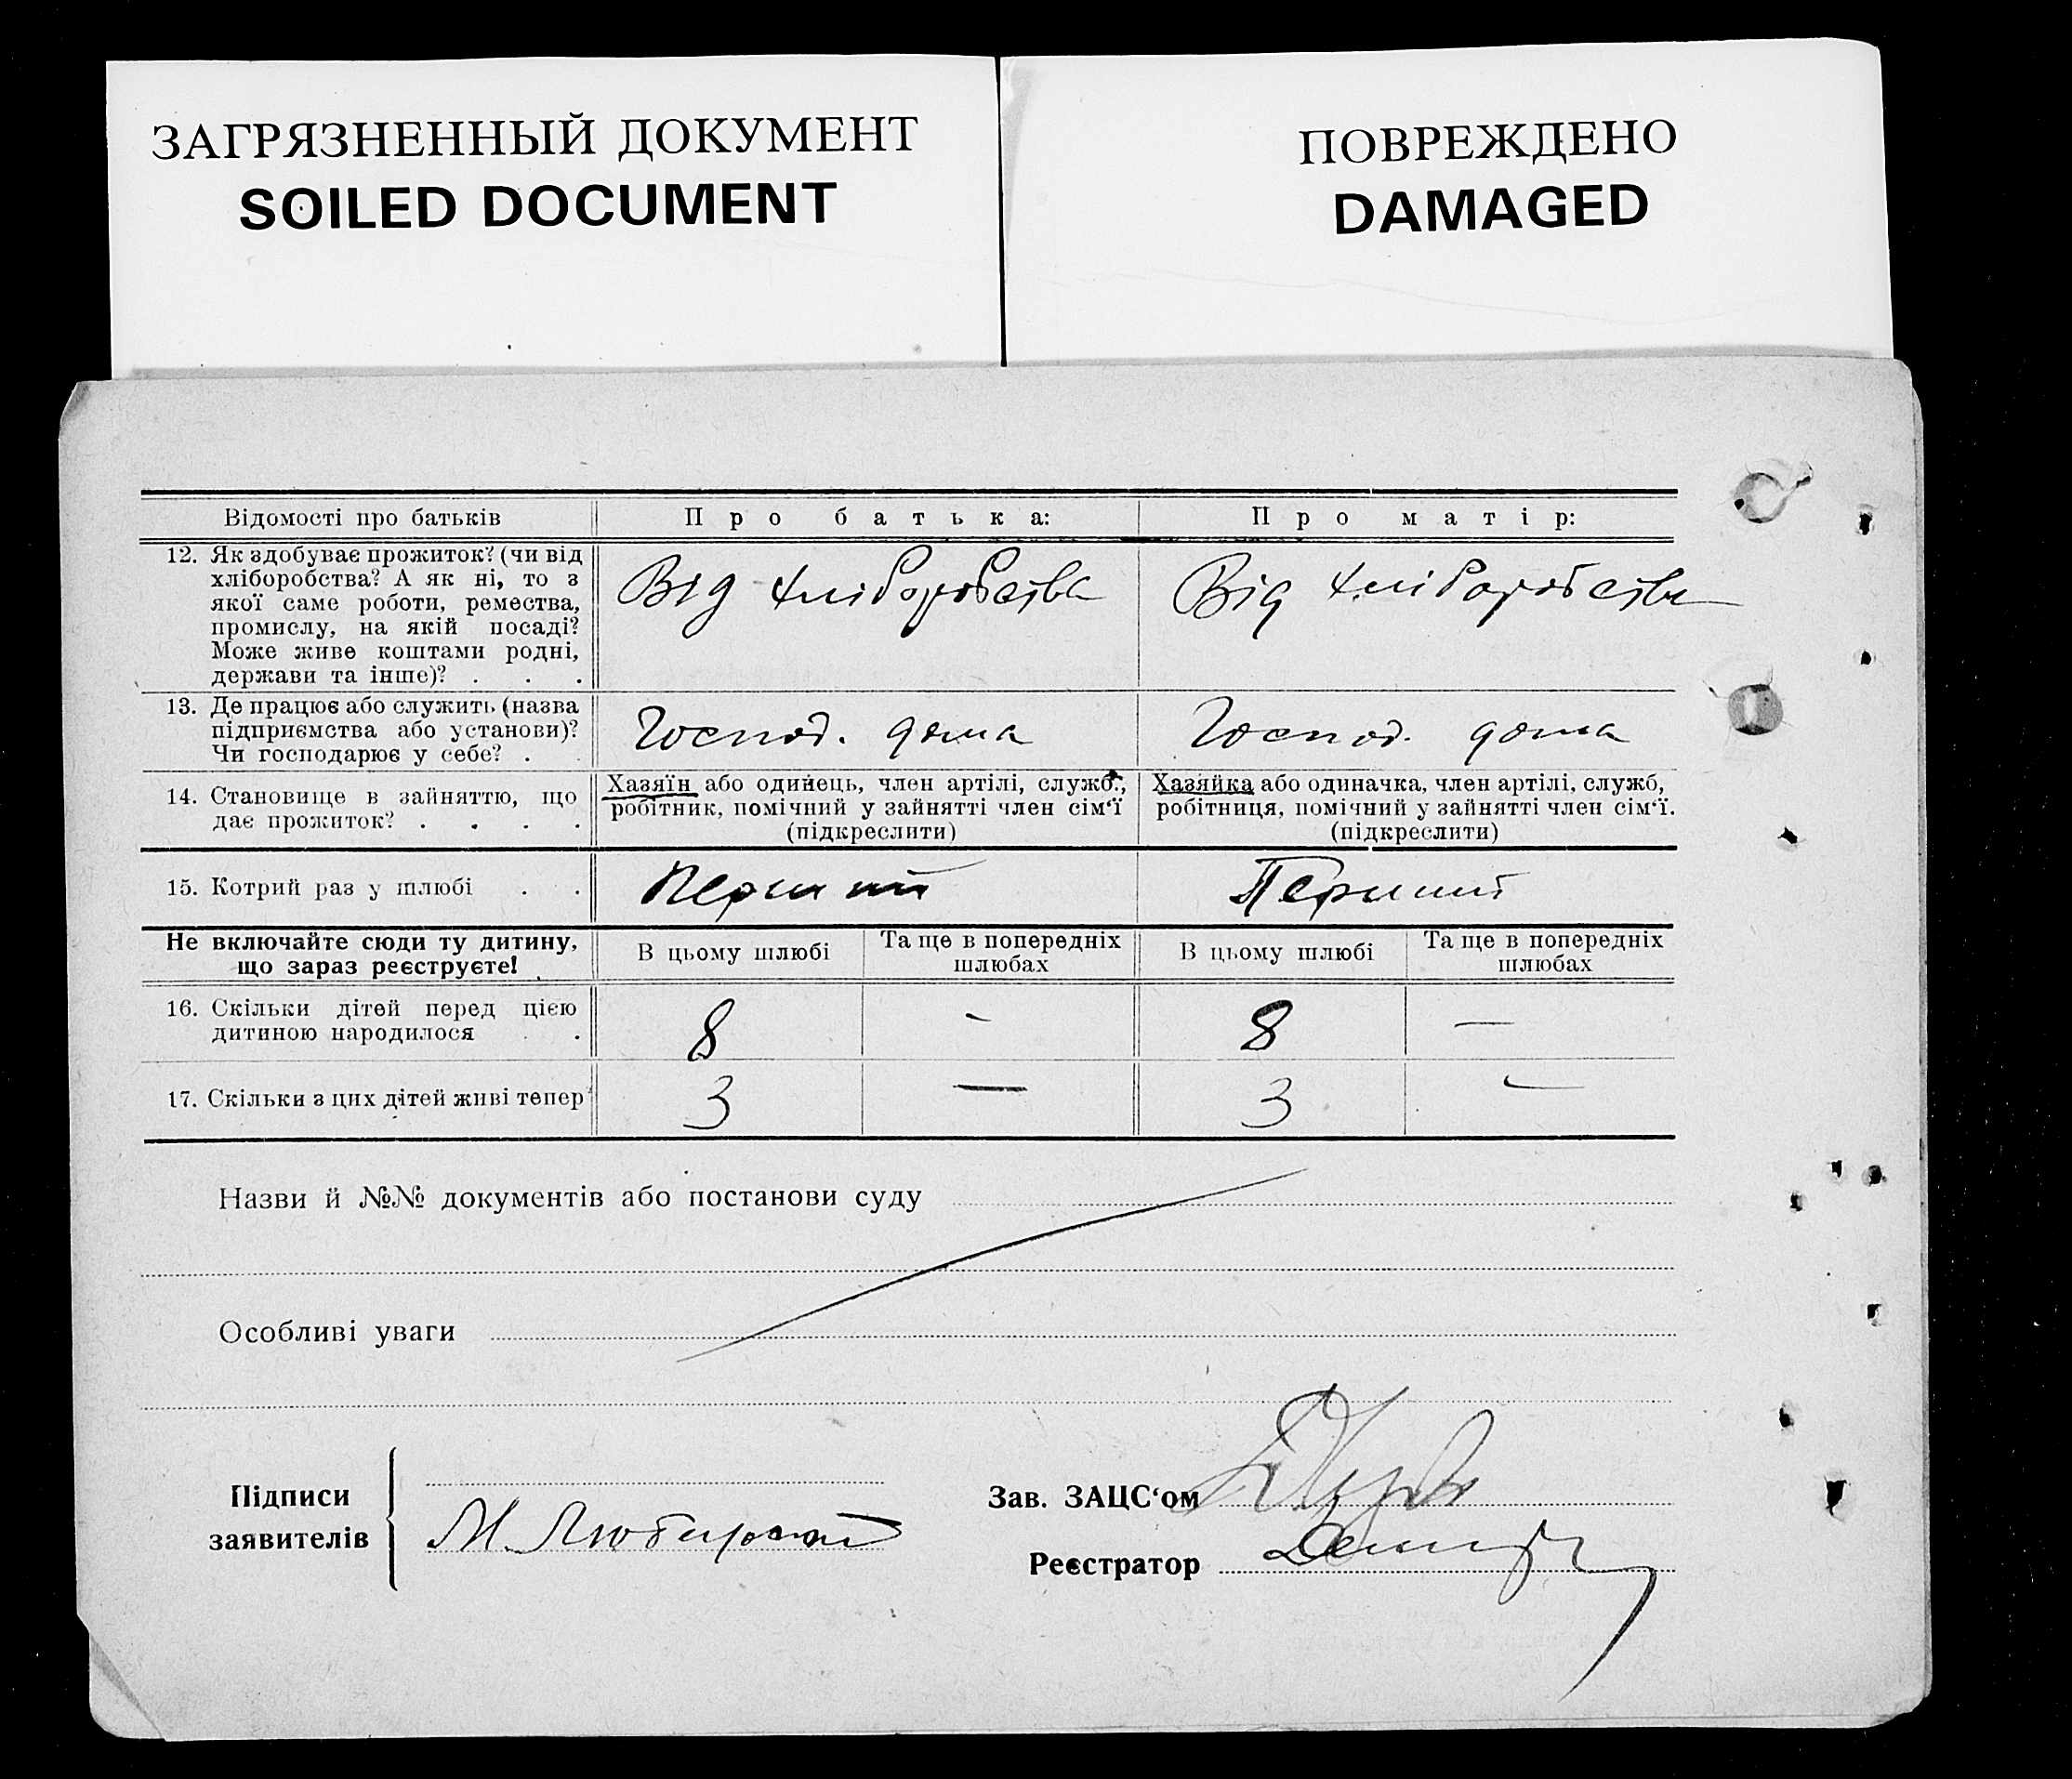 ЗАГРЯЗНЕННЫЙ ДОКУМЕНТ
SOILED DOCUMENT
ПОВРЕЖДЕНО
DAMAGED
Відомості про батьків
Про батька:
Про матір:
12. Як здобуває прожиток? (чи від
хліборобства? А як ні, то з
якої саме роботи, ремества,
промислу, на якій посаді?
Може живе коштами родні,
держави та інше)? . . .
Від хліборобства
Від хліборобства
13. Де працює або служить (назва
підприємства або установи)?
Чи господарює у себе? . .
Господ. дома
Господ. дома
14. Становище в зайняттю, що
дає прожиток? . . . .
Хазяїн або одинець, член артілі, служб.,
робітник, помічний у зайнятті член сім'ї
(підкреслити)
Хазяйка або одиначка, член артілі, служб,
робітниця, помічний у зайнятті член сім'ї.
(підкреслити)
15. Котрий раз у шлюбі . .
Перший
Перший
Не включайте сюди ту дитину,
що зараз реєструєте!
В цьому шлюбі
Та ще в попередніх
шлюбах
В цьому шлюбі
Та ще в попередніх
шлюбах
16. Скільки дітей перед цією
дитиною народилося .
8 - 8 —
17. Скільки з цих дітей живі тепер
3 — 3 —
Назви й №№ документів або постанови суду
Особливі уваги
Підписи
заявителів
М.
Зав. ЗАЦС‘ом
Реєстратор